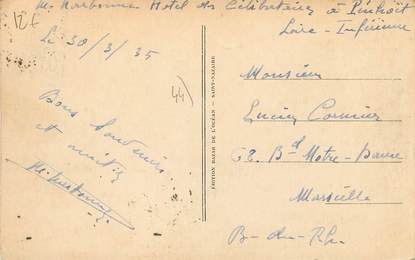 12f
M. Narbonne Hotel des Célibataires à Penhoët
Loire-Inférieure
Le 30/3/35
44
Bons Souvenirs
et amitiés
M. Narbonne
EDITION BAZAR DE L'OCÉAN - SAINT-NAZAIRE
Monsieur
Lucien Cormier
68. Bd Notre-Dame
Marseille
B-du-Rh.